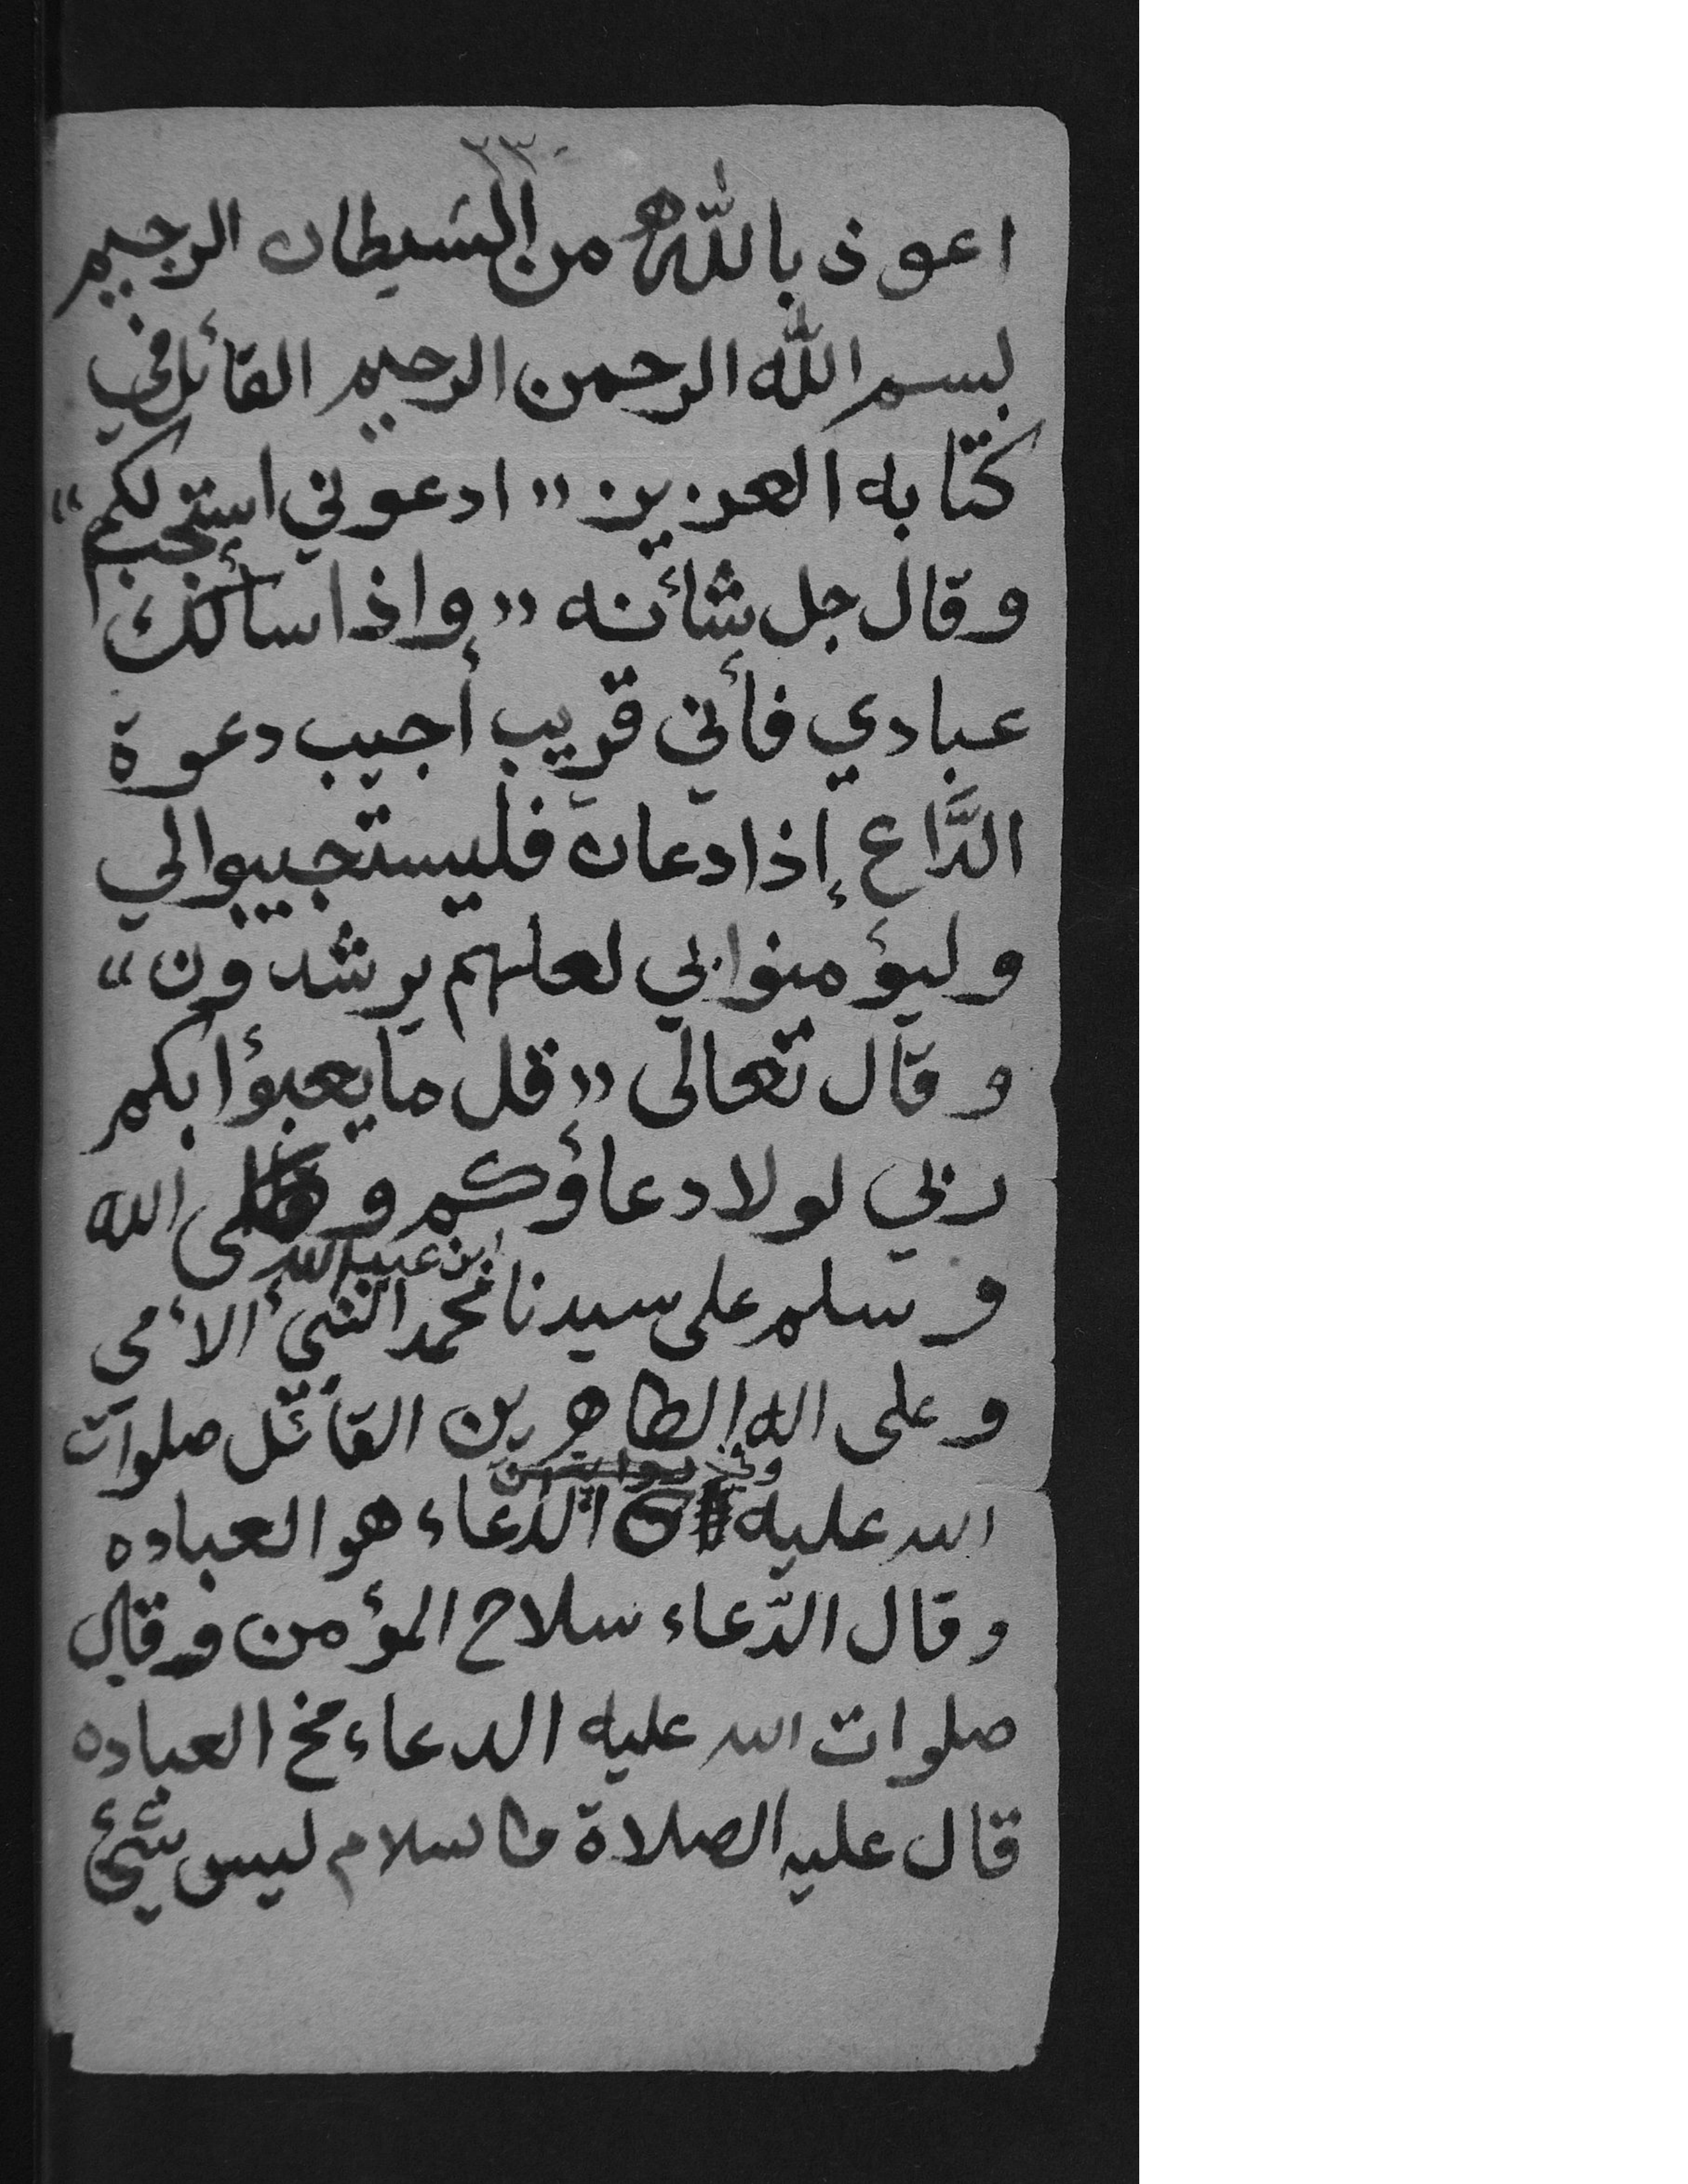 اعوذ بالله من الشيطان الرجيم
بسم الله الرحمن الرحيم القائل في
كتابه العزيز «ادعوني استجب لكم»
وقال جل شأنه «واذا سألك
عبادي فأني قريب أجيب دعوة
الدَّاع إذا دعان فليستجيبوا لي
وليؤمنوا بي لعلهم يرشدون»
وقال تعالى «قل ما يعبؤا بكم
ربي لولا دعاؤكم وصلى الله
ابن عبد الله
وسلم على سيدنا محمد النبي الأمي
وعلى اله الطاهرين القائل صلوات
الله عليه الدعاء هو العباده
وقال الدّعاء سلاح المؤمن وقال
صلوات الله عليه الدعاء مخ العباده
قال عليه الصلاة والسلام ليس شيئ